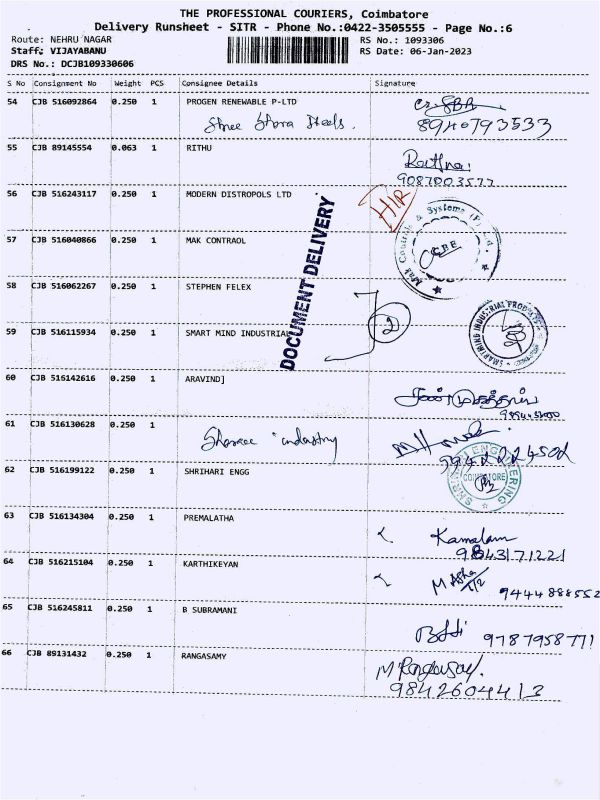 THE PROFESSIONAL COURIERS, Coimbatore
Delivery Runsheet - SITR - Phone No.:0422-3505555 - Page No.:6
Route: NEHRU NAGAR RS No.: 1093306
Staff: VIJAYABANU RS Date: 06-Jan-2023
DRS No.: DCJB109330606
S No Consignment No Weight PCS Consignee Details Signature
54 CJB 516092864 0.250 1 PROGEN RENEWABLE P-LTD
8940793533
55 CJB 89145554 0.063 1 RITHU
9087003577
56 CJB 516243117 0.250 1 MODERN DISTROPOLS LTD
H/R
57 CJB 516040866 0.250 1 MAK CONTRAOL
Mak Controls & Systems (P) Ltd.
CBE
DOCUMENT DELIVERY
58 CJB 516062267 0.250 1 STEPHEN FELEX
2
59 CJB 516115934 0.250 1 SMART MIND INDUSTRIAL
60 CJB 516142616 0.250 1 ARAVIND]
61 CJB 516130628 0.250 1
industry
62 CJB 516199122 0.250 1 SHRIHARI ENGG
COIMBATORE
63 CJB 516134304 0.250 1 PREMALATHA
Kamalam
9843171221
64 CJB 516215104 0.250 1 KARTHIKEYAN
9444888552
65 CJB 516245811 0.250 1 B SUBRAMANI
9787958771
66 CJB 89131432 0.250 1 RANGASAMY
M Rangasay.
9842604413